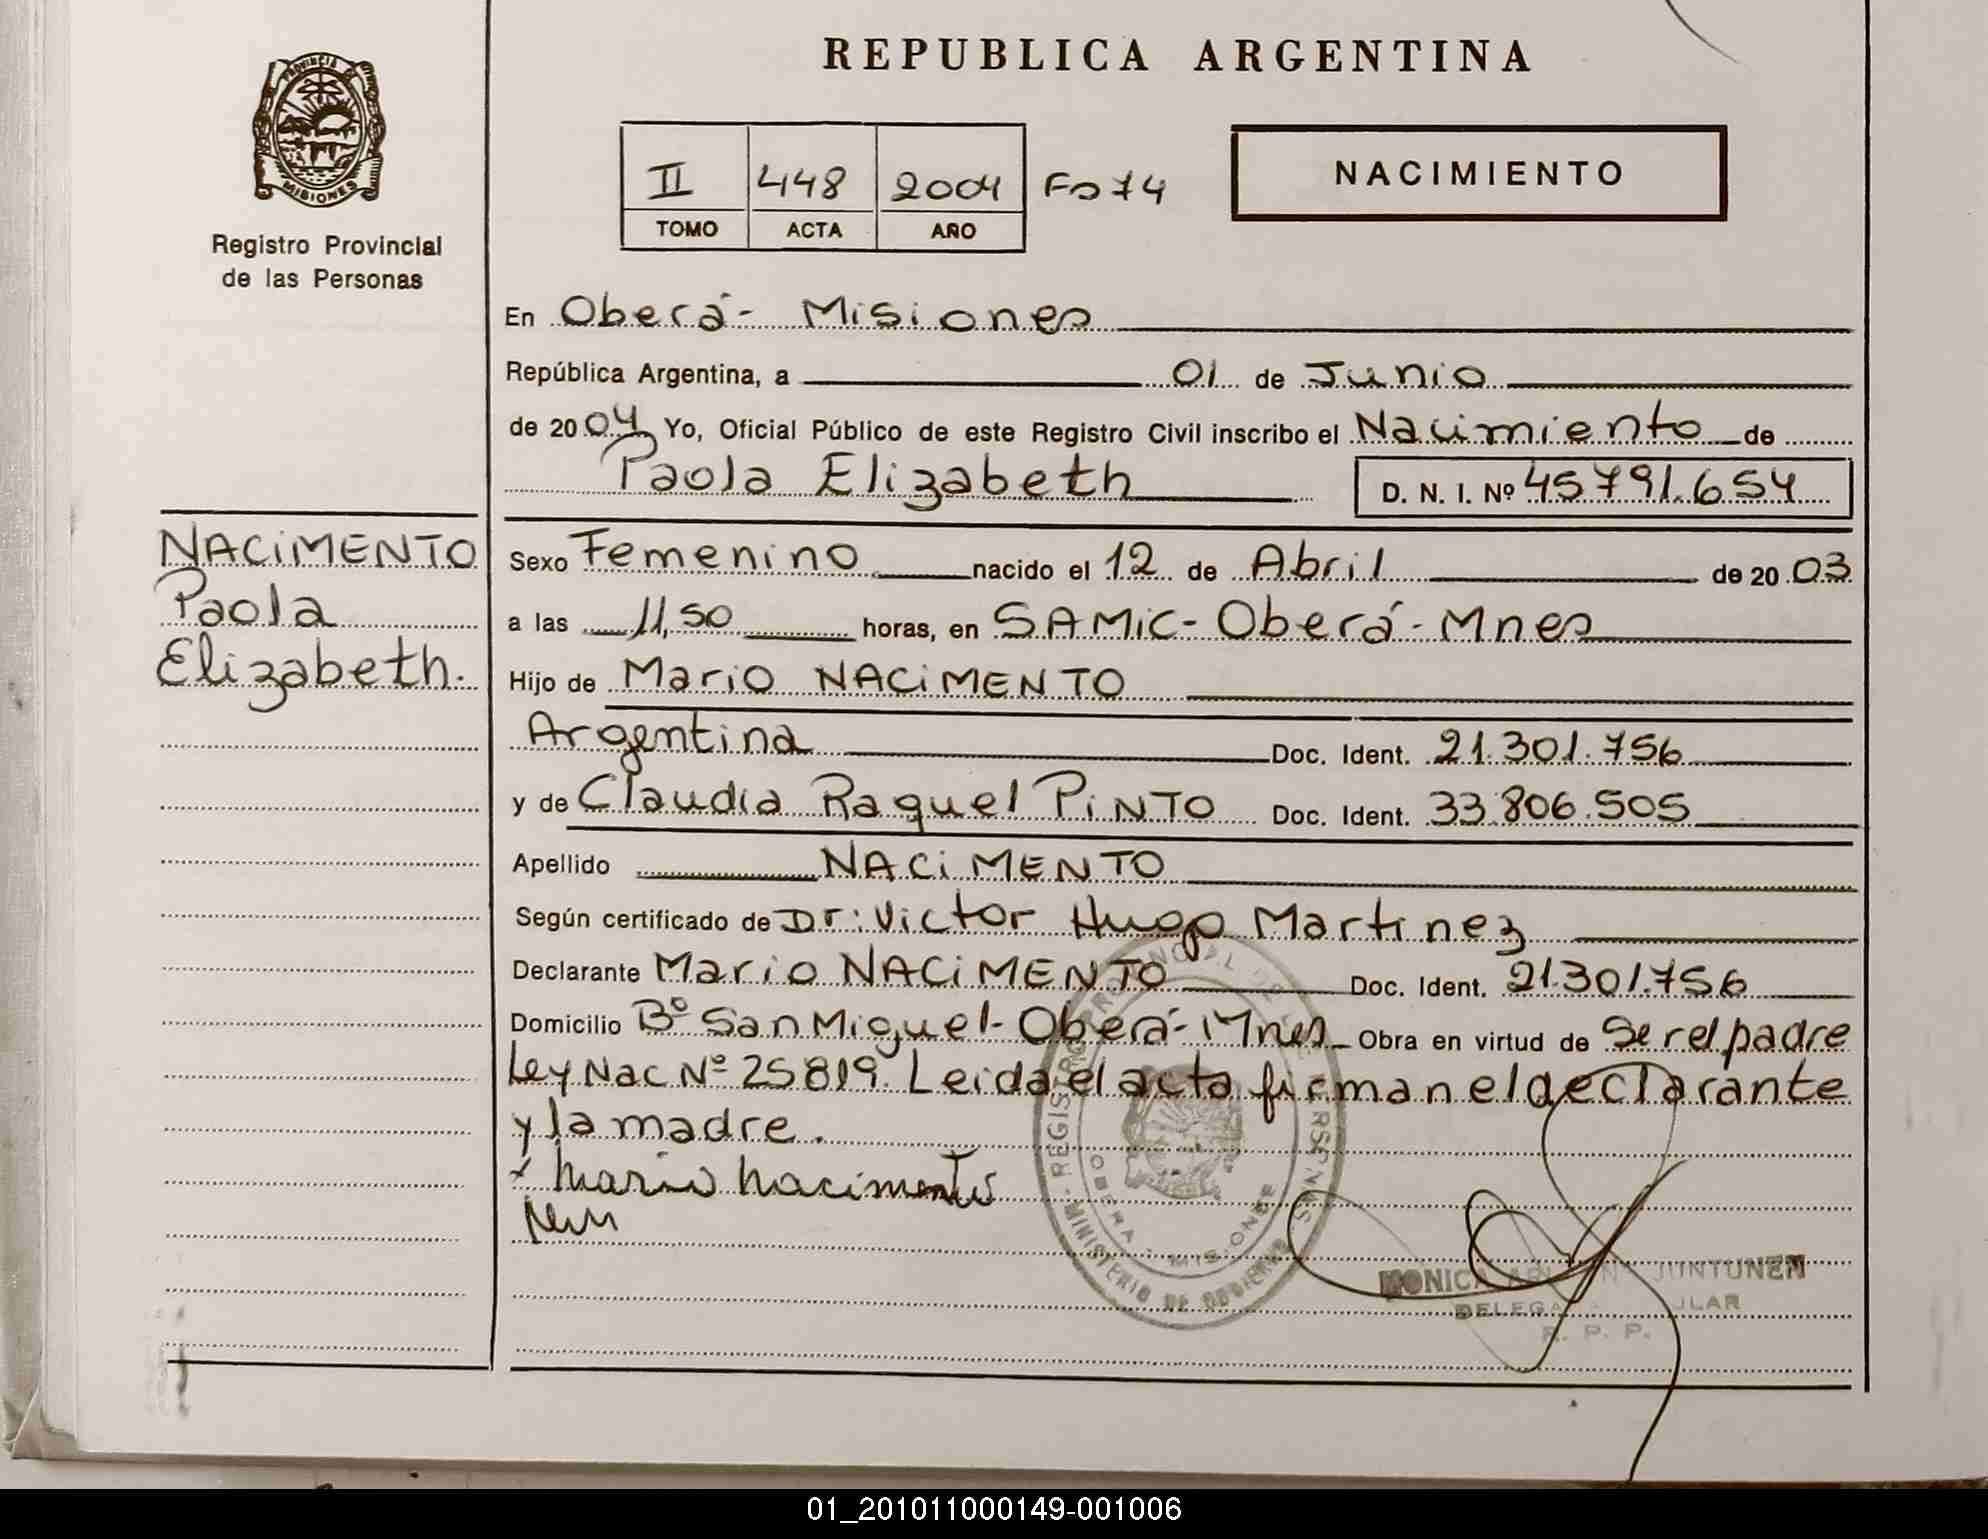 REPUBLICA ARGENTINA
PROVINCIA DE
MISIONES
Registro Provincial
de las Personas
II 448 2004 Fo 74
TOMO ACTA AÑO
NACIMIENTO
En Oberá - Misiones
República Argentina, a 01 de Junio
de 2004 Yo, Oficial Público de este Registro Civil inscribo el Nacimiento de
Paola Elizabeth D. N. I. Nº 45791.654
NACIMENTO
Paola
Elizabeth.
Sexo Femenino nacido el 12 de Abril de 2003
a las 11,50 horas, en SAMIC - Oberá - Mnes
Hijo de Mario NACIMENTO
Argentina Doc. Ident. 21.301.756
y de Claudia Raquel PINTO Doc. Ident. 33.806.505
Apellido NACIMENTO
Según certificado de Dr: Victor Hugo Martinez
Declarante Mario NACIMENTO Doc. Ident. 21.301.756
Domicilio Bº San Miguel - Oberá - Mnes Obra en virtud de Ser el padre
Ley Nac Nº 25819. Leida el acta firman el declarante
y la madre.
x Mario Nacimento
REGISTRO PROVINCIAL DE LAS PERSONAS
MINISTERIO DE GOBIERNO
OBERA - MISIONES
MONICA JUNTUNEN
R. P. P.
01_201011000149-001006